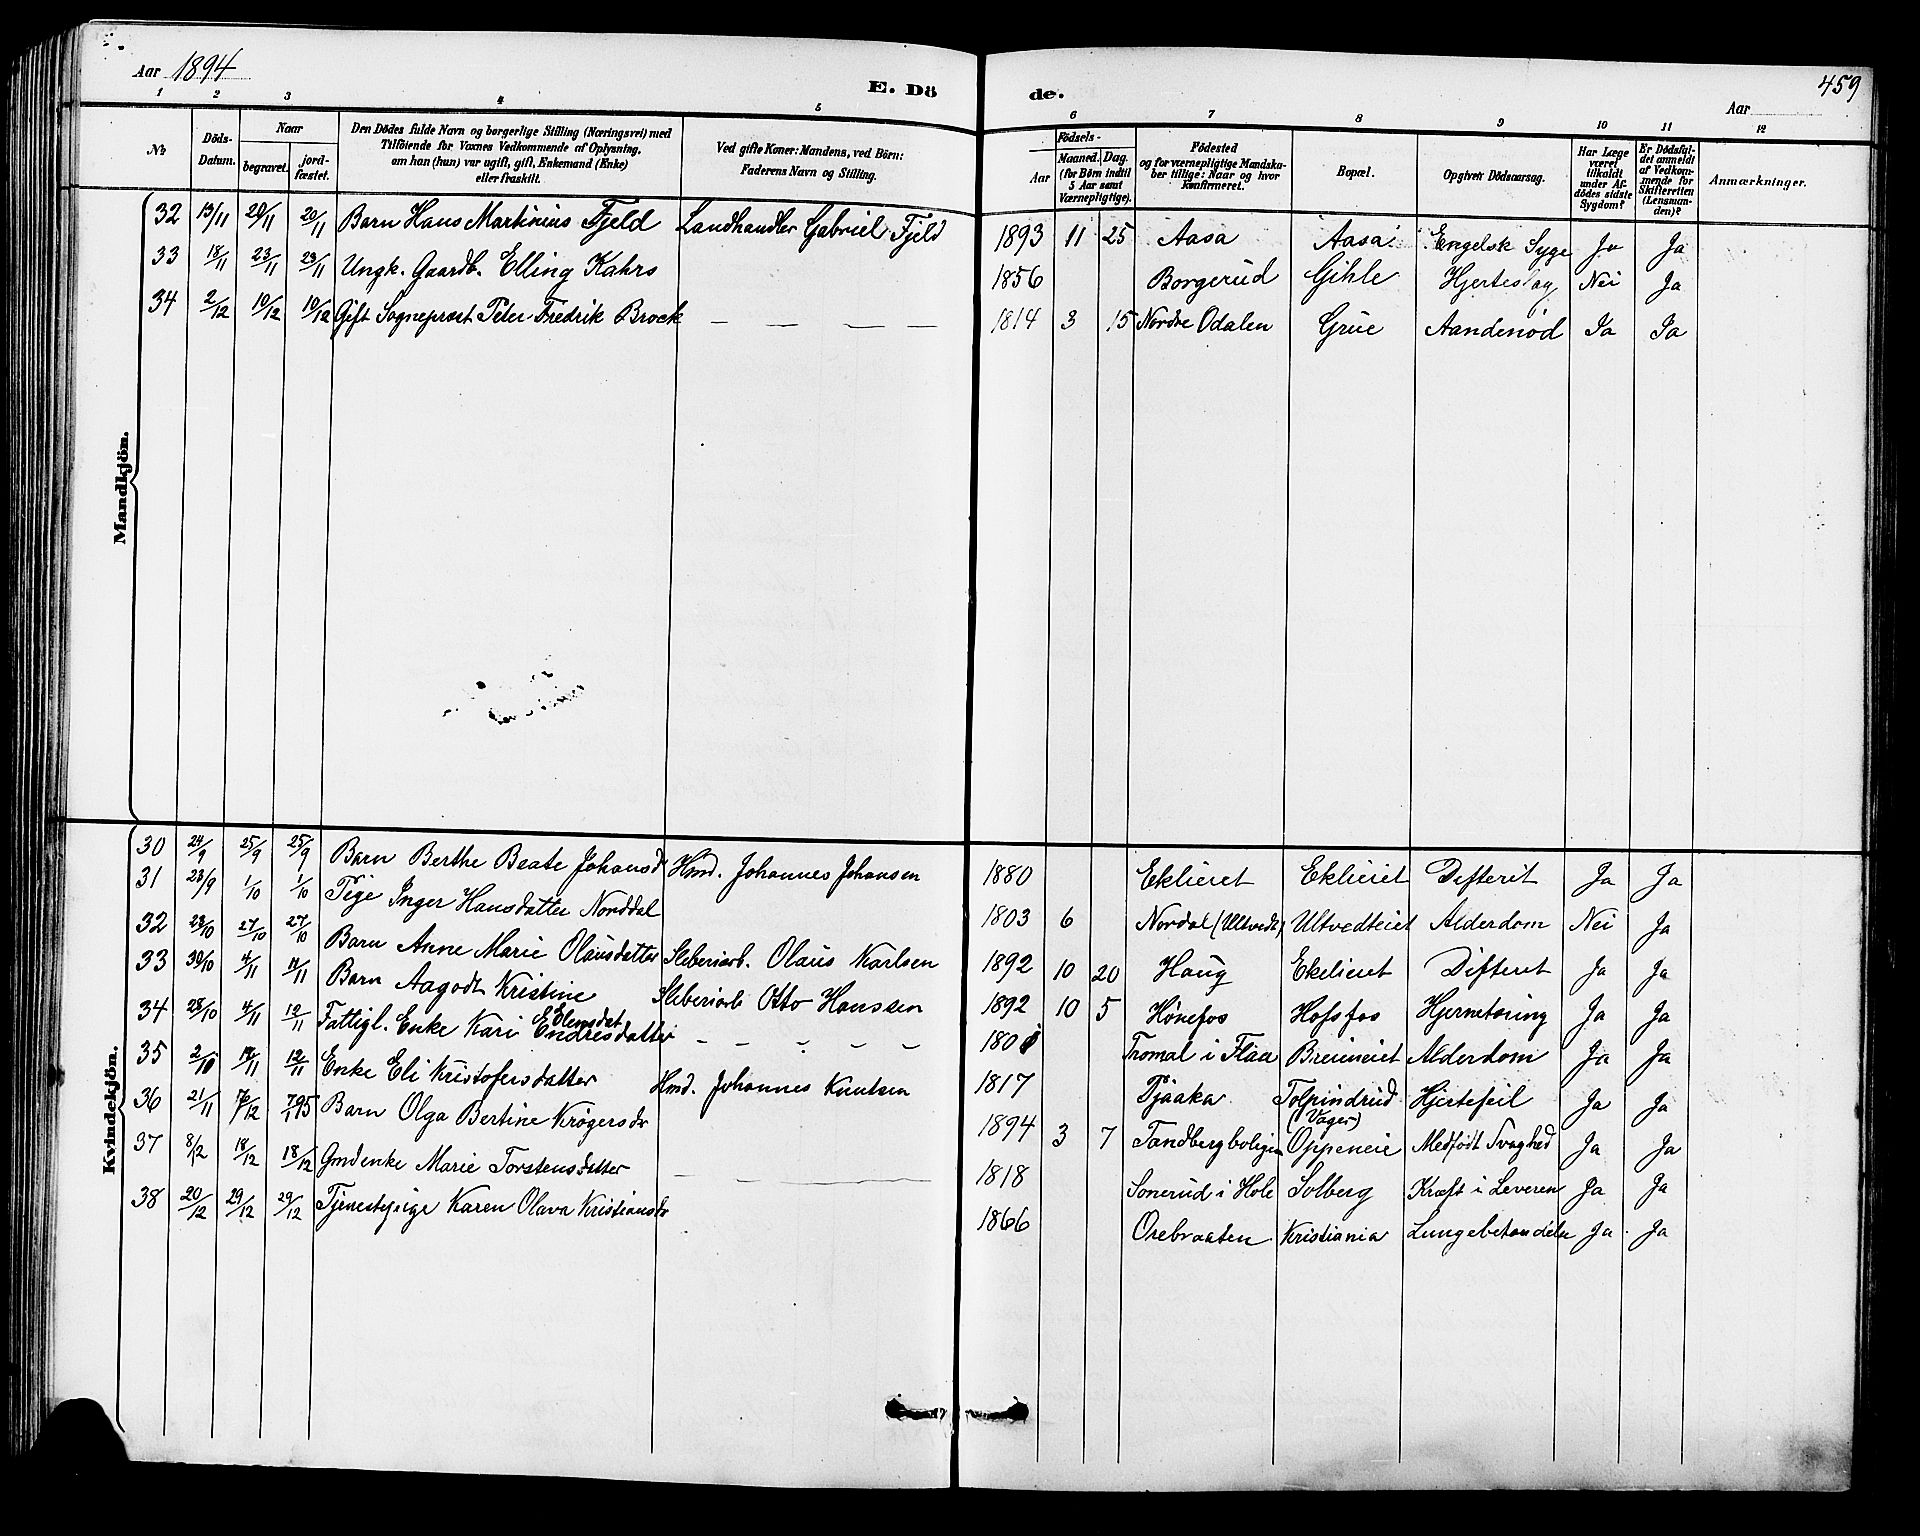 Aar 1894
E. Dö
de.
Aar
459
1 2 3 4 5 6 7 8 9 10 11 12
No
Döds-Datum.
Naar
begravet.
jordfæstet.
Den Dödes fulde Navn og borgerlige Stilling (Næringsvei) med
Tilföiende for Voxnes Vedkommende af Oplysning,
om han (hun) var ugift, gift, Enkemand (Enke)
eller fraskilt.
Ved gifte Koner: Mandens, ved Börn:
Faderens Navn og Stilling.
Födsels-
Aar
Maaned. Dag.
(for Börn indtil
5 Aar samt
Værnepligtige).
Födested
og for værnepligtige Mandska-
ber tillige: Naar og hvor
konfirmeret.
Bopæl.
Opgiven Dödsaarsag.
Har Læge
været
tilkaldt
under Af-
dödes sidste
Sygdom?
Er Dödsfal-
det anmeldt
af Vedkom-
mende for
Skifteretten
(Lensman-
den)?
Anmærkninger.
Mandkjön.
32 13/11 20/11 20/11 Barn Hans Martinius Fjeld Landhandler Gabriel Fjeld 1893 11 25 Aasa Aasa Engelsk Syge Ja Ja
33 18/11 23/11 23/11 Ungk. Gaardb. Elling Kahrs 1856 Borgerud Gihle Hjerteslag Nei Ja
34 2/12 10/12 10/12 Gift Sognepræst Peter Fredrik Brock — — — — 1814 3 15 Nordre Odalen Grue Aandenød Ja Ja
Kvindekjön.
30 24/9 25/9 25/9 Barn Berthe Beate Johansd Hmd. Johannes Johansen 1880 Eklieiet Eklieiet Difterit Ja Ja
31 23/9 1/10 1/10 Pige Inger Hansdatter Norddal 1803 6 Nordal (Ultvedt) Ultvedteiet Alderdom Nei Ja
32 23/10 27/10 27/10 Barn Anne Marie Olausdatter Sliberiarb. Olaus Karlsen 1892 10 20 Haug Ekelieiet Difterit Ja Ja
33 30/10 4/11 11/11 Barn Aagodt Kristine Sliberiarb Otto Hanssen 1892 10 5 Hønefos Hofsfos Hjernetæring Ja Ja
34 28/10 4/11 12/11 Fattigl. Enke Kari Endresdatter - - - - - Tromal i Flaa Alderdom Ja Ja
35 12/11 Enke Eli Kristofersdatter Hmd. Johannes Knutsen 1817 Tjaaka Tolpindrud (Vager) Hjertefeil Ja Ja
36 21/11 7/1 95 Barn Olga Bertine Krøgersdr 1894 3 7 Tandbergboligen Oppeneie Medfødt Svaghed Ja Ja
37 8/12 18/12 18/12 Gmdenke Marie Torstensdatter — — — — 1818 Sonerud i Hole Solberg Kræft i Leveren Ja Ja
38 20/12 29/12 29/12 Tjenestepige Karen Olava Kristiansdr 1866 Orebraaten Kristiania Ja Ja